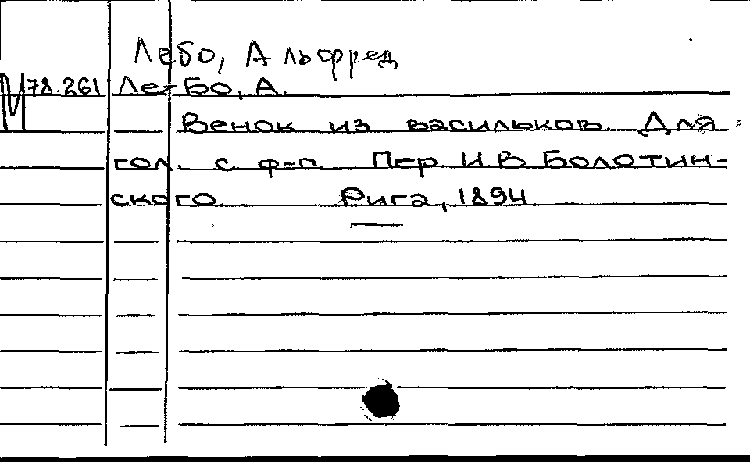 Лебо, Альфред
М 78.261 Ле-Бо, А.
Венок из васильков. Для
гол. с ф-п. Пер. И.В. Болотин-
ского. Рига, 1894